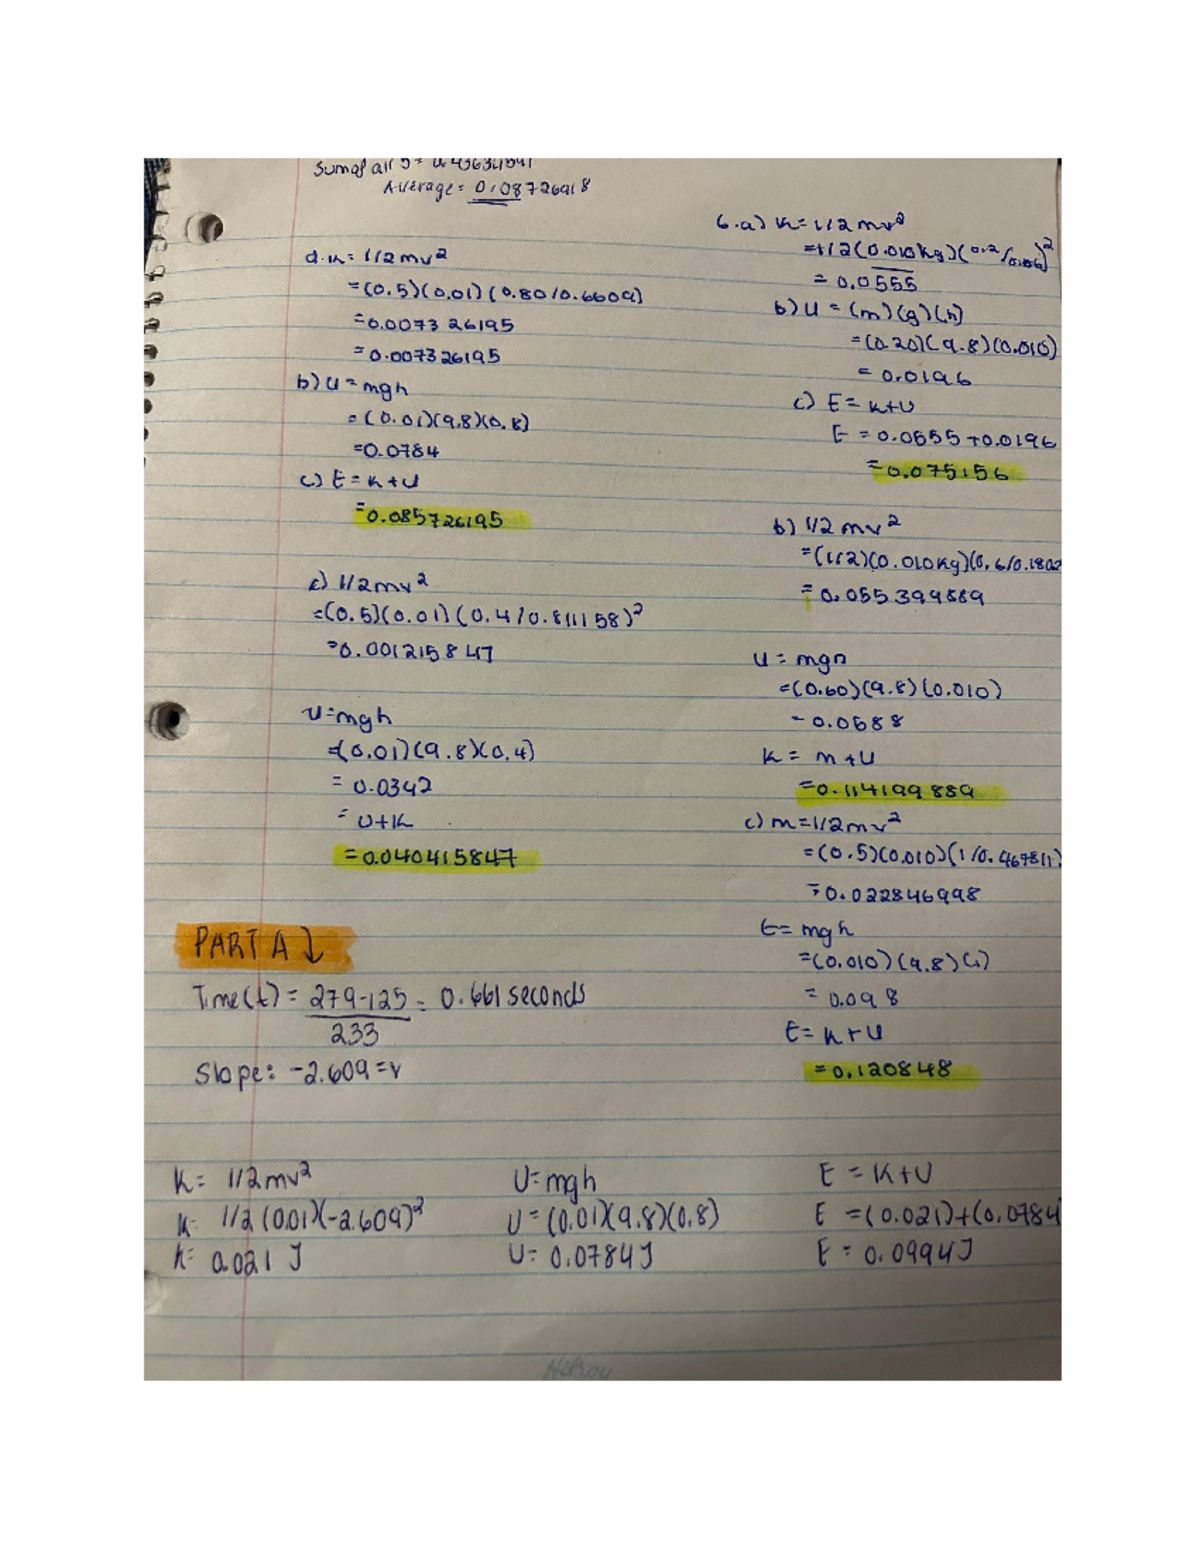 Sum of all 5 =
Average = 0.08726918
d. K = 1/2 mv²
= (0.5)(0.01)(0.80/0.6609)
= 0.007326195
= 0.007326195
b) U = mgh
= (0.01)(9.8)(0.8)
= 0.0784
c) E = K + U
= 0.085726195
c) 1/2 mv²
= (0.5)(0.01)(0.4/0.811158)²
= 0.001215847
U = mgh
= (0.01)(9.8)(0.4)
= 0.0342
= U + K
= 0.040415847
6.a) K = 1/2 mv²
= 1/2 (0.010kg)(0.2/0.06)²
= 0.0555
b) U = (m)(g)(h)
= (0.20)(9.8)(0.010)
= 0.0196
c) E = K+U
E = 0.0555 + 0.0196
= 0.075156
b) 1/2 mv²
= (1/2)(0.010kg)(0.6/0.1802
= 0.055399889
U = mgh
= (0.60)(9.8)(0.010)
= 0.0588
K = m + U
= 0.114199889
c) m = 1/2 mv²
= (0.5)(0.010)(1/0.467811)
= 0.022846998
E = mgh
= (0.010)(9.8)(1)
= 0.098
E = K + U
= 0.120848
PART A ↓
Time(t) = 279-125 = 0.661 seconds
233
Slope: -2.609 = v
K = 1/2 mv²
K = 1/2 (0.01)(-2.609)²
K = 0.021 J
U = mgh
U = (0.01)(9.8)(0.8)
U = 0.0784 J
E = K+U
E = (0.021)+(0.0784
E = 0.0994 J
Hilroy